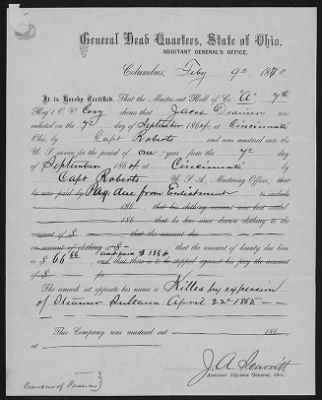 General Head Quarters, State of Ohio,
ADJUTANT GENERAL'S OFFICE,
Columbus, Feby 9th 1870
It is Hereby Certified, That the Muster-out Roll of Co. "A" 7th
Reg't O. V. Cavy shows that Jacob
enlisted on the 7th day of September 1864, at Cincinnati
Ohio, by Capt Roberts and was mustered into the
U. S. service for the period of one year, from the 7th day
of September 1864 at Cincinnati by
Capt Roberts U. S. A., Mustering Officer, that
he was paid by Pay due from Enlistment to include
186 that his clothing account was last settled
186 that he has since drawn clothing to the
amount of clothing is $ that the amount of bounty due him
is $ 66 66 and paid $ 33 that there is to be stopped against his pay the amount
of $ for
The remark set opposite his name is Killed by explosion
of Steamer Sultana April 1865
This Company was mustered out 186
at
J. A.
Assistant Adjutant General, Ohio.